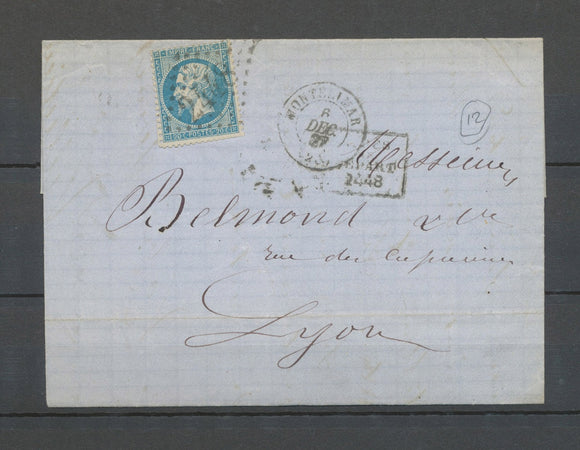 EMPIRE FRANC
20 C POSTES 20 C
MONTELIMAR
6
DEC.
67
1448
12
Messieurs
Belmond & Cie
rue des Capucins
Lyon